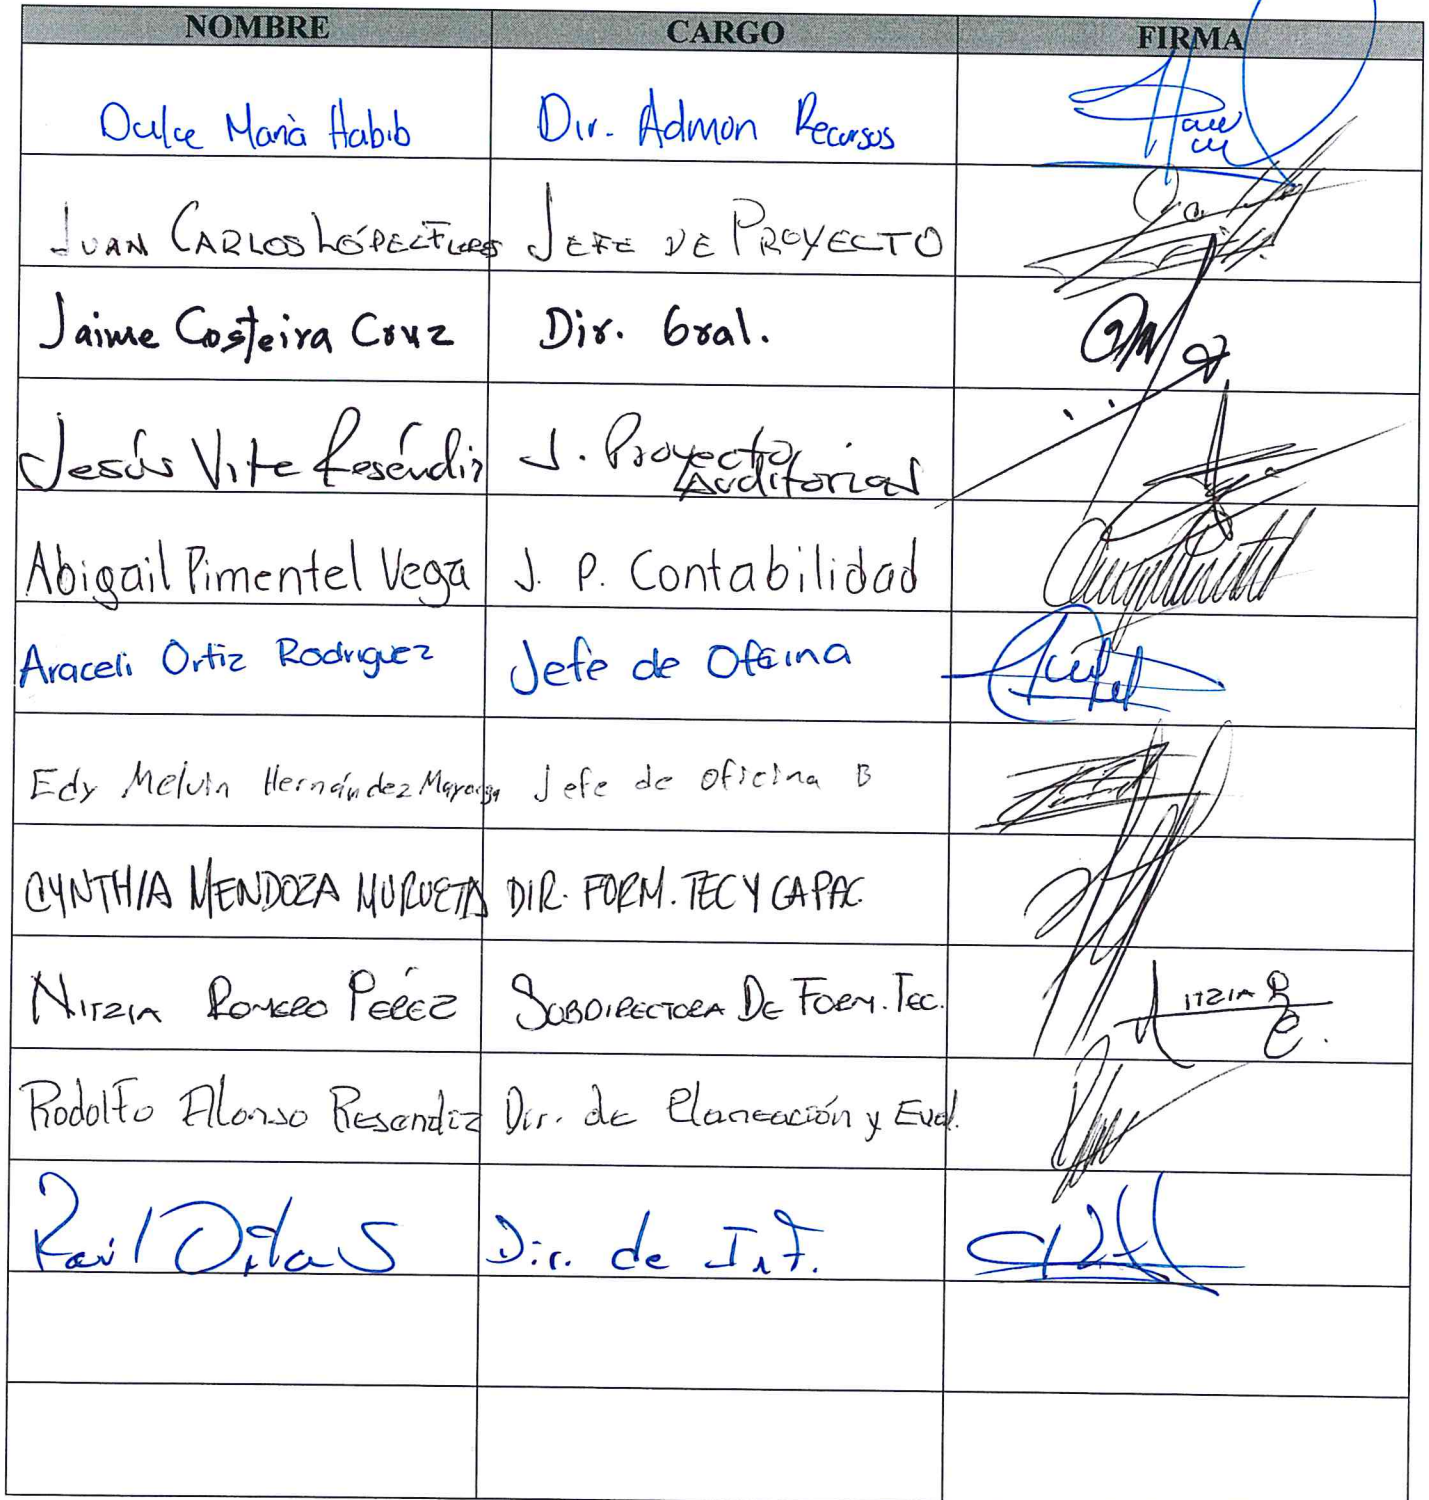 NOMBRE CARGO FIRMA
Dulce María Habib Dir. Admon Recursos
JUAN CARLOS LÓPEZ FLORES JEFE DE PROYECTO
Jaime Costeira Cruz Dir. Gral.
Jesús Vite Reséndiz J. Proyecto
Auditorias
Abigail Pimentel Vega J. P. Contabilidad
Araceli Ortiz Rodriguez Jefe de Oficina
Edy Melvin Hernández Jefe de oficina B
CYNTHIA MENDOZA MURUETA DIR. FORM. TEC Y CAPAC.
NITZIA ROMERO PÉREZ SUBDIRECTORA DE FORM. TEC. NITZIA R
Rodolfo Alonso Resendiz Dir. de Planeación y Eval.
Raúl S Dir. de